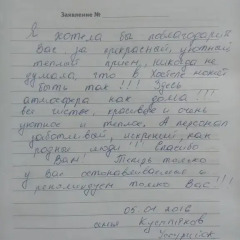 Заявление №
Я хотела бы поблагодарить
Вас за прекрасный, уютный
теплый прием, никогда не
думала, что в хостеле может
быть так!!! Здесь
атмосфера как дома!!!
все чисто, красиво и очень
уютно и тепло. А персонал
заботливый, искренний, как
родные люди!!! Спасибо
Вам! Теперь только
у Вас останавливаемся и
рекомендуем только Вас!!!
05 01 2016
семья
Уссурийск